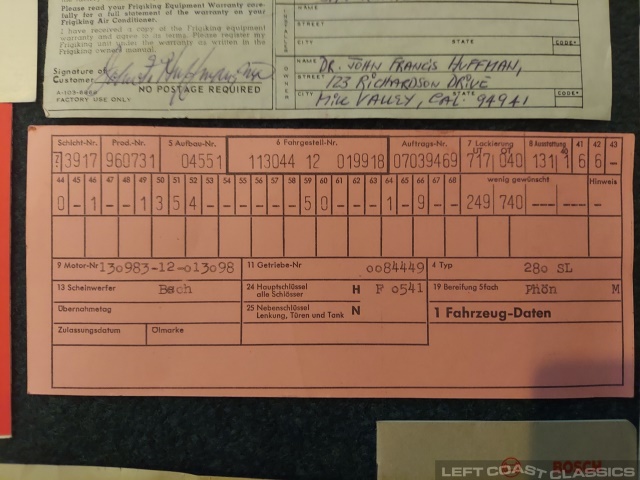 Please read your Frigiking Equipment Warranty care-
fully for a full statement of the warranty on your
Frigiking Air Conditioner.
I have received a copy of the Frigiking equipment
warranty and agree to its terms. Please register my
Frigiking unit under the warranty as written in the
Frigiking owner's manual.
Signature of
Customer
NO POSTAGE REQUIRED
A-103-6868
FACTORY USE ONLY
STREET
CITY STATE CODE*
OWNER
NAME DR. JOHN FRANCIS HUFFMAN,
STREET 123 RICHARDSON DRIVE
CITY MILL VALLEY, CAL. 94941 STATE CODE*
Schicht-Nr. Prod.-Nr. 5 Aufbau-Nr. 6 Fahrgestell-Nr. Auftrags-Nr. 7 Lackierung 8 Ausstattung 41 42 43
UT OT
3917 960731 04551 113044 12 019918 07039469 717 040 131 1 6 6 -
44 45 46 47 48 49 50 51 52 53 54 55 56 57 58 59 60 61 62 63 64 65 66 67 68 wenig gewünscht Hinweis
0 - 1 - 1 3 5 4 - - - - - - - 5 0 - - - 1 - 9 - - 249 740 --- --- -
9 Motor-Nr 130983-12-013098 11 Getriebe-Nr 0084449 4 Typ 280 SL
13 Scheinwerfer Bsch 24 Hauptschlüssel alle Schlösser H F 0541 19 Bereifung 5fach Phön M
Übernahmetag 25 Nebenschlüssel Lenkung, Türen und Tank N 1 Fahrzeug-Daten
Zulassungsdatum Ölmarke
BOSCH
LEFT COAST CLASSICS